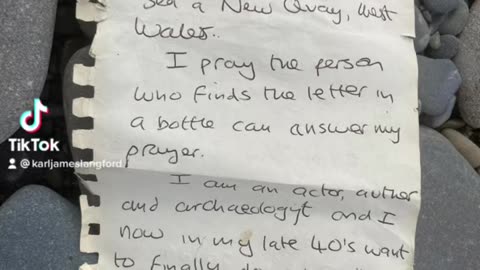 sea a New Quay, West
Wales..
I pray the person
who finds the letter in
a bottle can answer my
prayer.
I am an actor, author
and archaeologist and I
now in my late 40's want
to finally
TikTok
@karljameslangford